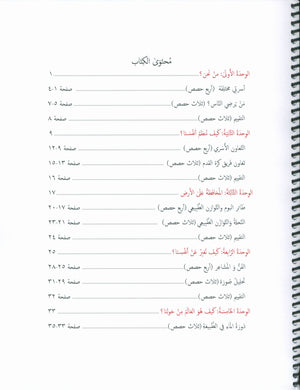 مُحتوى الكِتاب
الوحدة الأولى: مَنْ نَحن؟ ١
أسرتي مختلفة (أربع حصص) صفحة ١-٤
مَنْ يرضي النّاس؟ (ثلاث حصص) ٥-٧
التقييم (ثلاث حصص) صفحة ٨
الوحدة الثانية: كيف نُنظّم أنفسنا؟ ٩
التعاون الأسري (أربع حصص) صفحة ٩-١٢
تعاون فريق كرة القدم (ثلاث حصص) ١٣-١٥
التقييم (ثلاث حصص) صفحة ١٦
الوحدة الثالثة: المحافظة على الأرض ١٧
طائر البوم والتوازن الطّبيعي (أربع حصص) ١٧-٢٠
النملة والتوازن الطّبيعي (ثلاث حصص) ٢١-٢٣
التقييم (ثلاث حصص) صفحة ٢٤
الوحدة الرابعة: كيف نُعبّر عَنْ أنفسنا؟ ٢٥
الفنّ و المشاعر (أربع حصص) صفحة ٢٥-٢٨
تحليل صورة (ثلاث حصص) صفحة ٢٩-٣١
التقييم (ثلاث حصص) صفحة ٣٢
الوحدة الخامسة: كيف هُو العالم مِنْ حولنا؟ ٣٣
دورة الماء في الطّبيعة (ثلاث حصص) صفحة ٣٣-٣٥